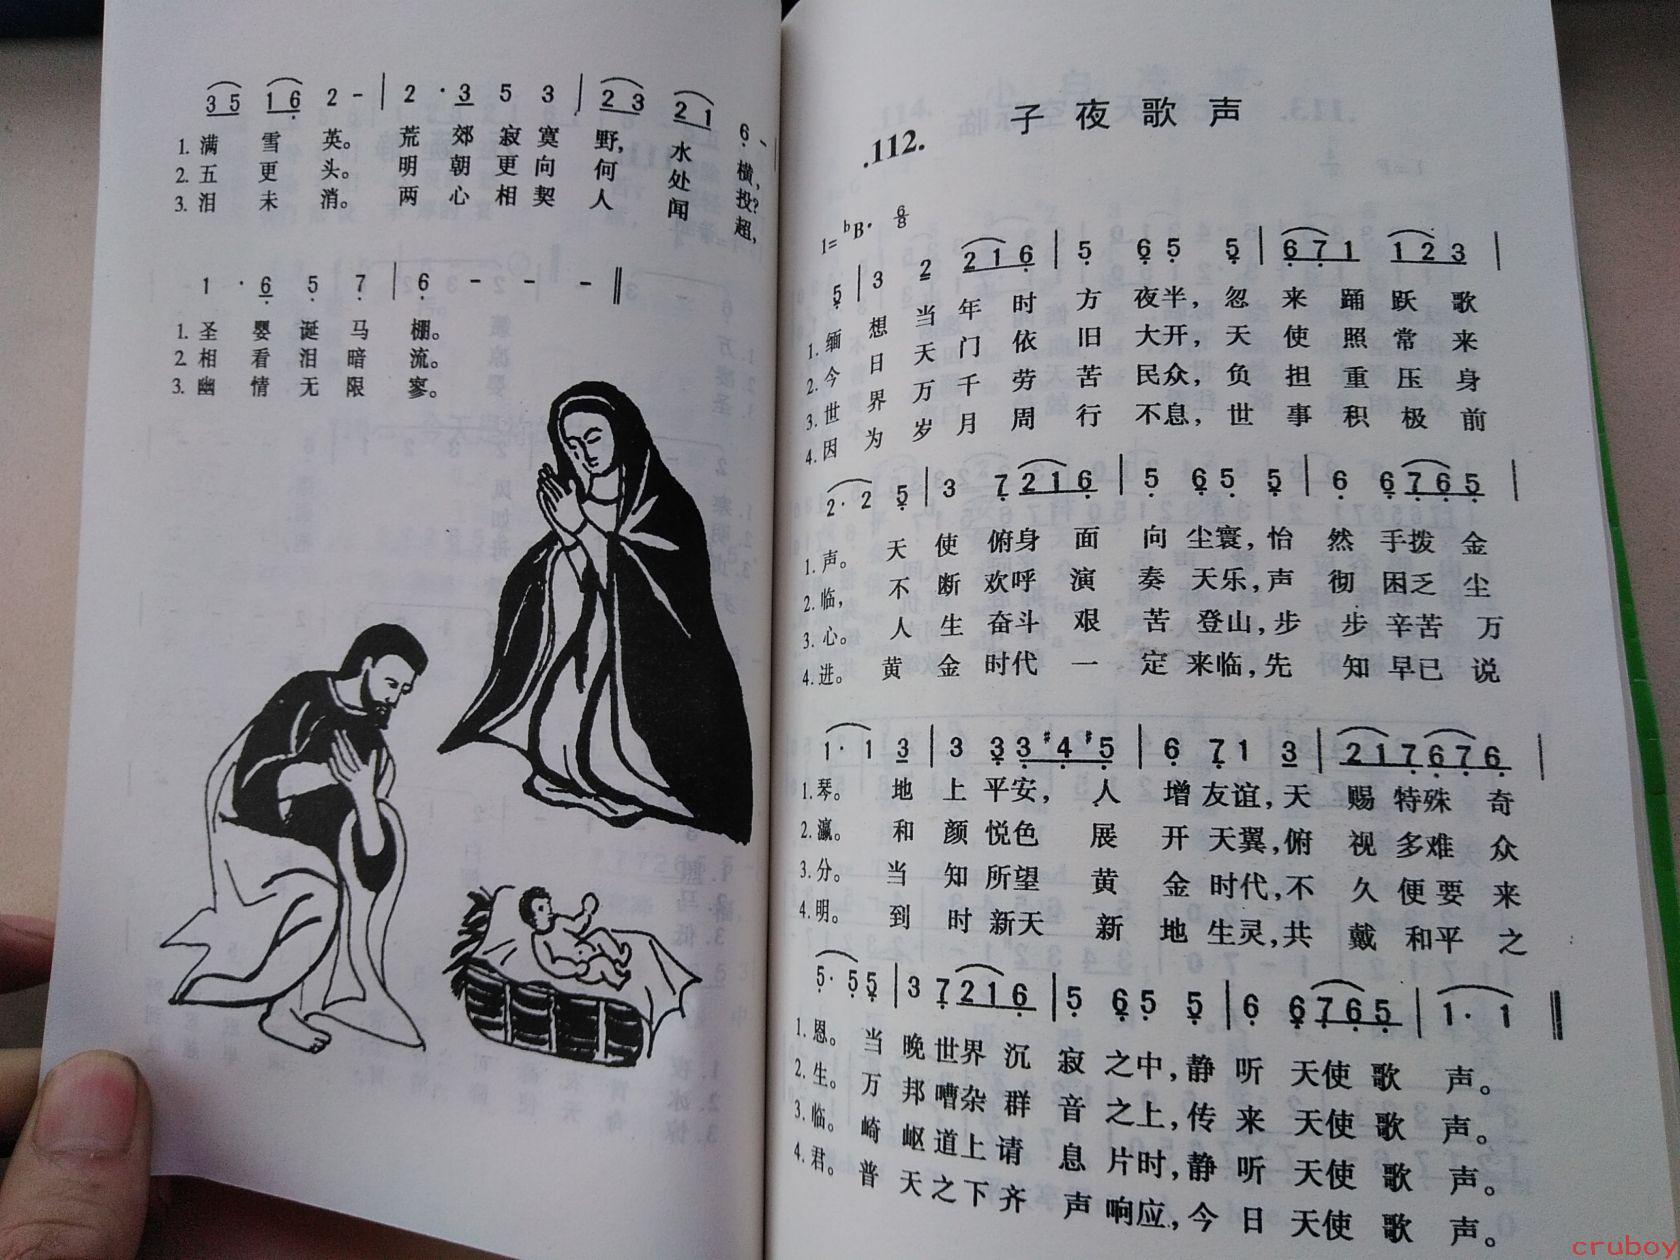 3 5 1 6 2 - | 2 · 3 5 3 | 2 3 2 1 6 - |
1. 满 雪 英。 荒 郊 寂 寞 野, 水 横,
2. 五 更 头。 明 朝 更 向 何 处 投?
3. 泪 未 消。 两 心 相 契 人 闻 超,
1 · 6 5 7 | 6 - - - ‖
1. 圣 婴 诞 马 棚。
2. 相 看 泪 暗 流。
3. 幽 情 无 限 寥。
.112. 子夜歌声
1= ᵇB· 6/8
5 | 3 2 2 1 6 | 5 6 5 5 | 6 7 1 1 2 3 |
1. 缅 想 当 年 时 方 夜半, 忽 来 踊 跃 歌
2. 今 日 天 门 依 旧 大开, 天 使 照 常 来
3. 世 界 万 千 劳 苦 民众, 负 担 重 压 身
4. 因 为 岁 月 周 行 不息, 世 事 积 极 前
2 · 2 5 | 3 7 2 1 6 | 5 6 5 5 | 6 6 7 6 5 |
1. 声。 天 使 俯身 面 向 尘寰, 怡 然 手拨 金
2. 临, 不 断 欢呼 演 奏 天乐, 声 彻 困乏 尘
3. 心。 人 生 奋斗 艰 苦 登山, 步 步 辛苦 万
4. 进。 黄 金 时代 一 定 来临, 先 知 早已 说
1 · 1 3 | 3 3 3 #4 #5 | 6 7 1 3 | 2 1 7 6 7 6 |
1. 琴。 地 上 平安, 人 增 友谊, 天 赐 特殊 奇
2. 瀛。 和 颜 悦色 展 开 天翼, 俯 视 多难 众
3. 分。 当 知 所望 黄 金 时代, 不 久 便要 来
4. 明。 到 时 新天 新 地 生灵, 共 戴 和平 之
5 · 5 5 | 3 7 2 1 6 | 5 6 5 5 | 6 6 7 6 5 | 1 · 1 ‖
1. 恩。 当 晚 世界 沉 寂 之中, 静 听 天使 歌 声。
2. 生。 万 邦 嘈杂 群 音 之上, 传 来 天使 歌 声。
3. 临。 崎 岖 道上 请 息 片时, 静 听 天使 歌 声。
4. 君。 普 天 之下 齐 声 响应, 今 日 天使 歌 声。
cruboy